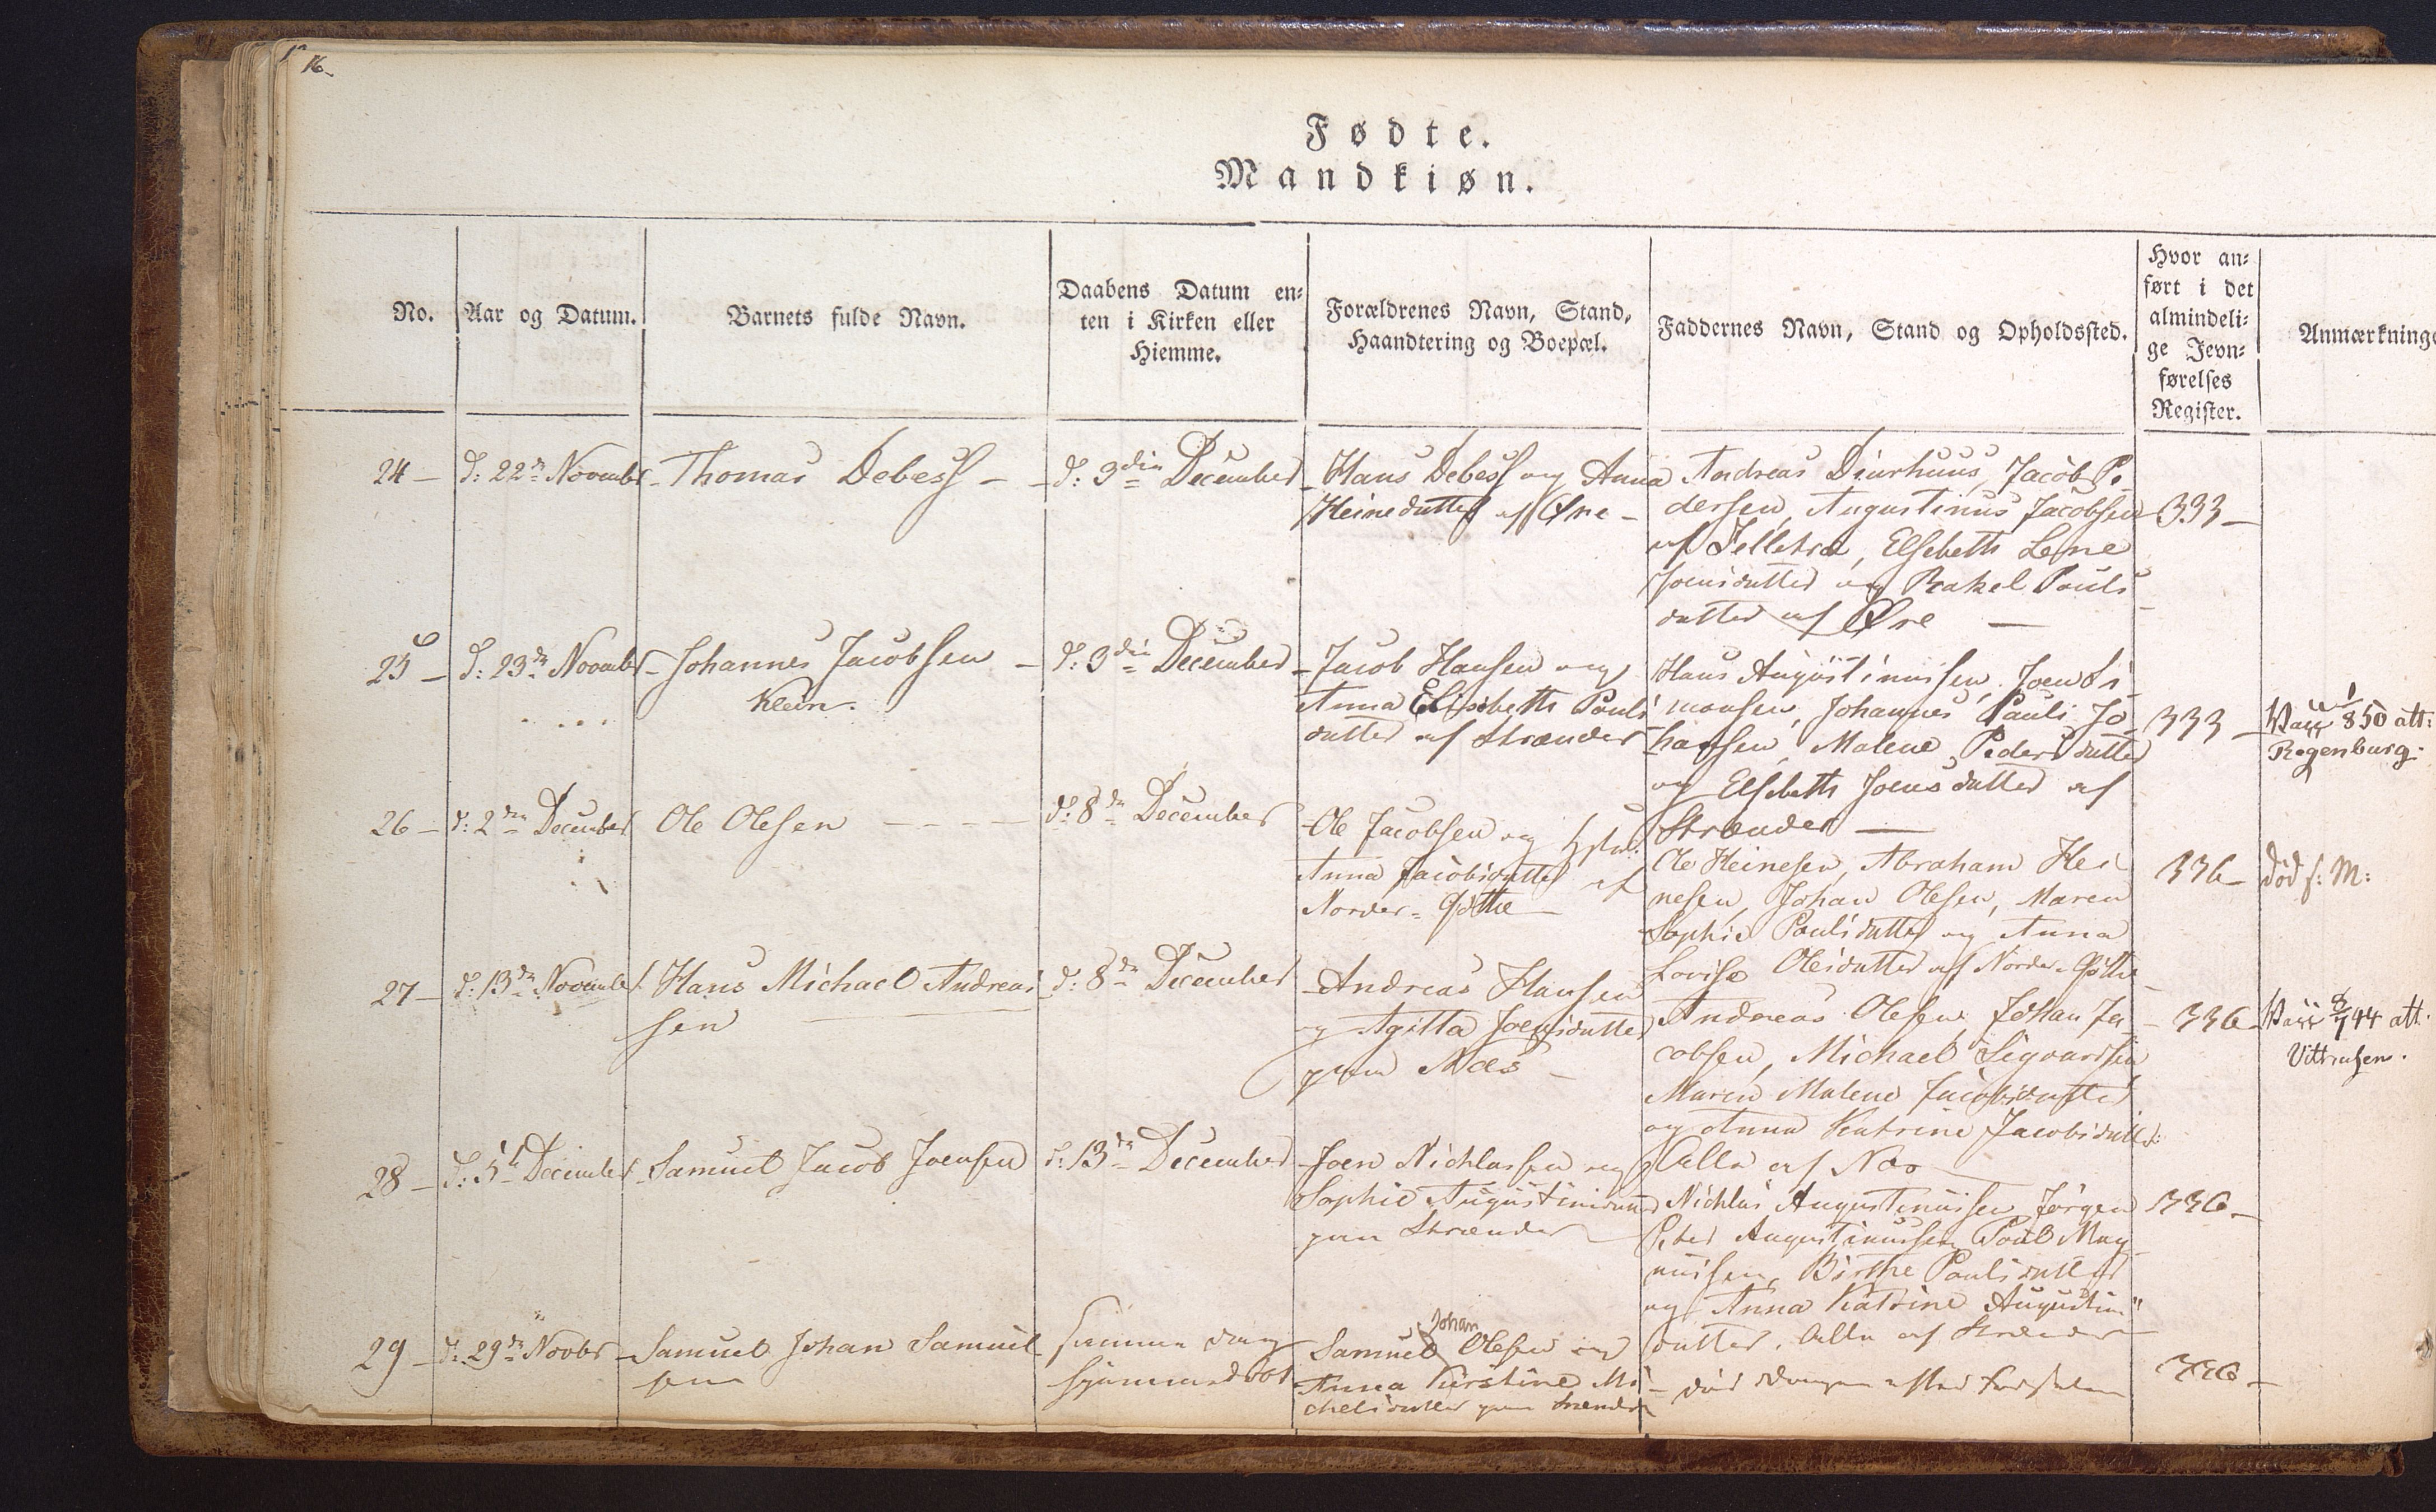 16.
Fødte.
Mandkiøn.
No.
Aar og Datum.
Barnets fulde Navn.
Daabens Datum en-
ten i Kirken eller
Hiemme.
Forældrenes Navn, Stand,
Haandtering og Boepæl.
Faddernes Navn, Stand og Opholdssted.
Hvor an-
ført i det
almindeli-
ge Jevn-
førelses
Register.
Anmærkninge
24 - d: 22de Novembr - Thomas Debess - - d: 3die December
Hans Debess og Anna
Heinedatter af Øre -
Andreas Diurhuus, Jacob Pe-
dersen, Augustinus Jacobsen
af Selletræ, Elsebeth Lene
Joensdatter og Rakel Pouls-
datter af Øre -
333 -
25 - d: 23de Novembr - Johannes Jacobsen - d: 3die December
Klein.
Jacob Hansen og
Anna Elisabeth Pouls
datter af Strænder
Hans Augustinussen, Joen Si-
monsen, Johannes Pauli Jo-
hansen, Malene Pedersdatter
og Elsebeth Joensdatter af
Strænder -
333 -
850 att:
Regenburg.
26 - d: 2den December Ole Olesen - - - - d: 8de December
Ole Jacobsen og Hstr:
Anna Jacobsdatter af
Norder-Gøthe
Ole Heinesen, Abraham Hei
nesen, Johan Olesen, Maren
Sophie Poulsdatter og Anna
Lovise Olesdatter af Norder-Gøthe
336 -
død f: M:
27 - d: 13de November Hans Michael Andreas
sen
d: 8de December
Andreas Hansen
og Agitta Joensdatter
paa Næs -
Andreas Olesen, Johan Ja-
cobsen, Michael Sigvardsen
Maren Malene Jacobsdatter
og Anna Katrine Jacobsdatter
Alle af Næs
336 -
44 att.
28 - d: 5te December - Samuel Jacob Joensen d: 13de December
Joen Nichlassen og
Sophie
paa Strænder
Nichlas Augustinussen, Jörgen
Peter Augustinussen, Poul Mag
nussen, Birthe Poulsdatter
og Anna Katrine Augustinus
datter. Alle af Strænder
336 -
29 - d: 29de Novbr - Samuel Johan Samuel
sen
samme Dag
hjemmedøbt
Johan
Samuel Olesen og
Anna Kirstine Mi-
chelsdatter paa Strænder
- død Dagen efter Fødselen
336 -